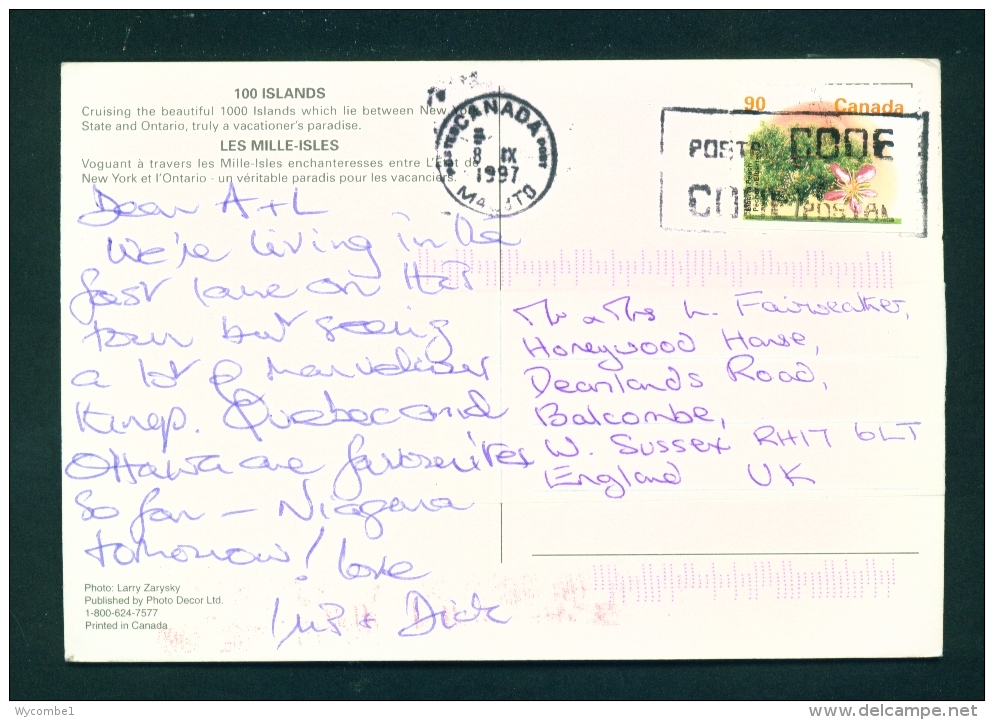 100 ISLANDS
Cruising the beautiful 1000 Islands which lie between New
State and Ontario, truly a vacationer's paradise.
LES MILLE-ISLES
Voguant à travers les Mille-Isles enchanteresses entre
New York et l'Ontario - un véritable paradis pour les vacanciers.
CANADA
POST
8 IX
1997
90 Canada
CODE
POSTAL
Dear A + L
We're living in the
fast lane on this
tour but seeing
a lot of marvellous
things. Quebec and
Ottawa are favourites
so far – Niagara
tomorrow! love
+ Dick
Mr & Mrs L. Fairweather,
Honeywood House,
Deanlands Road,
Balcombe,
W. Sussex RH17 6LT
England UK
Photo: Larry Zarysky
Published by Photo Decor Ltd.
1-800-624-7577
Printed in Canada
Wycombe1
delcampe.net